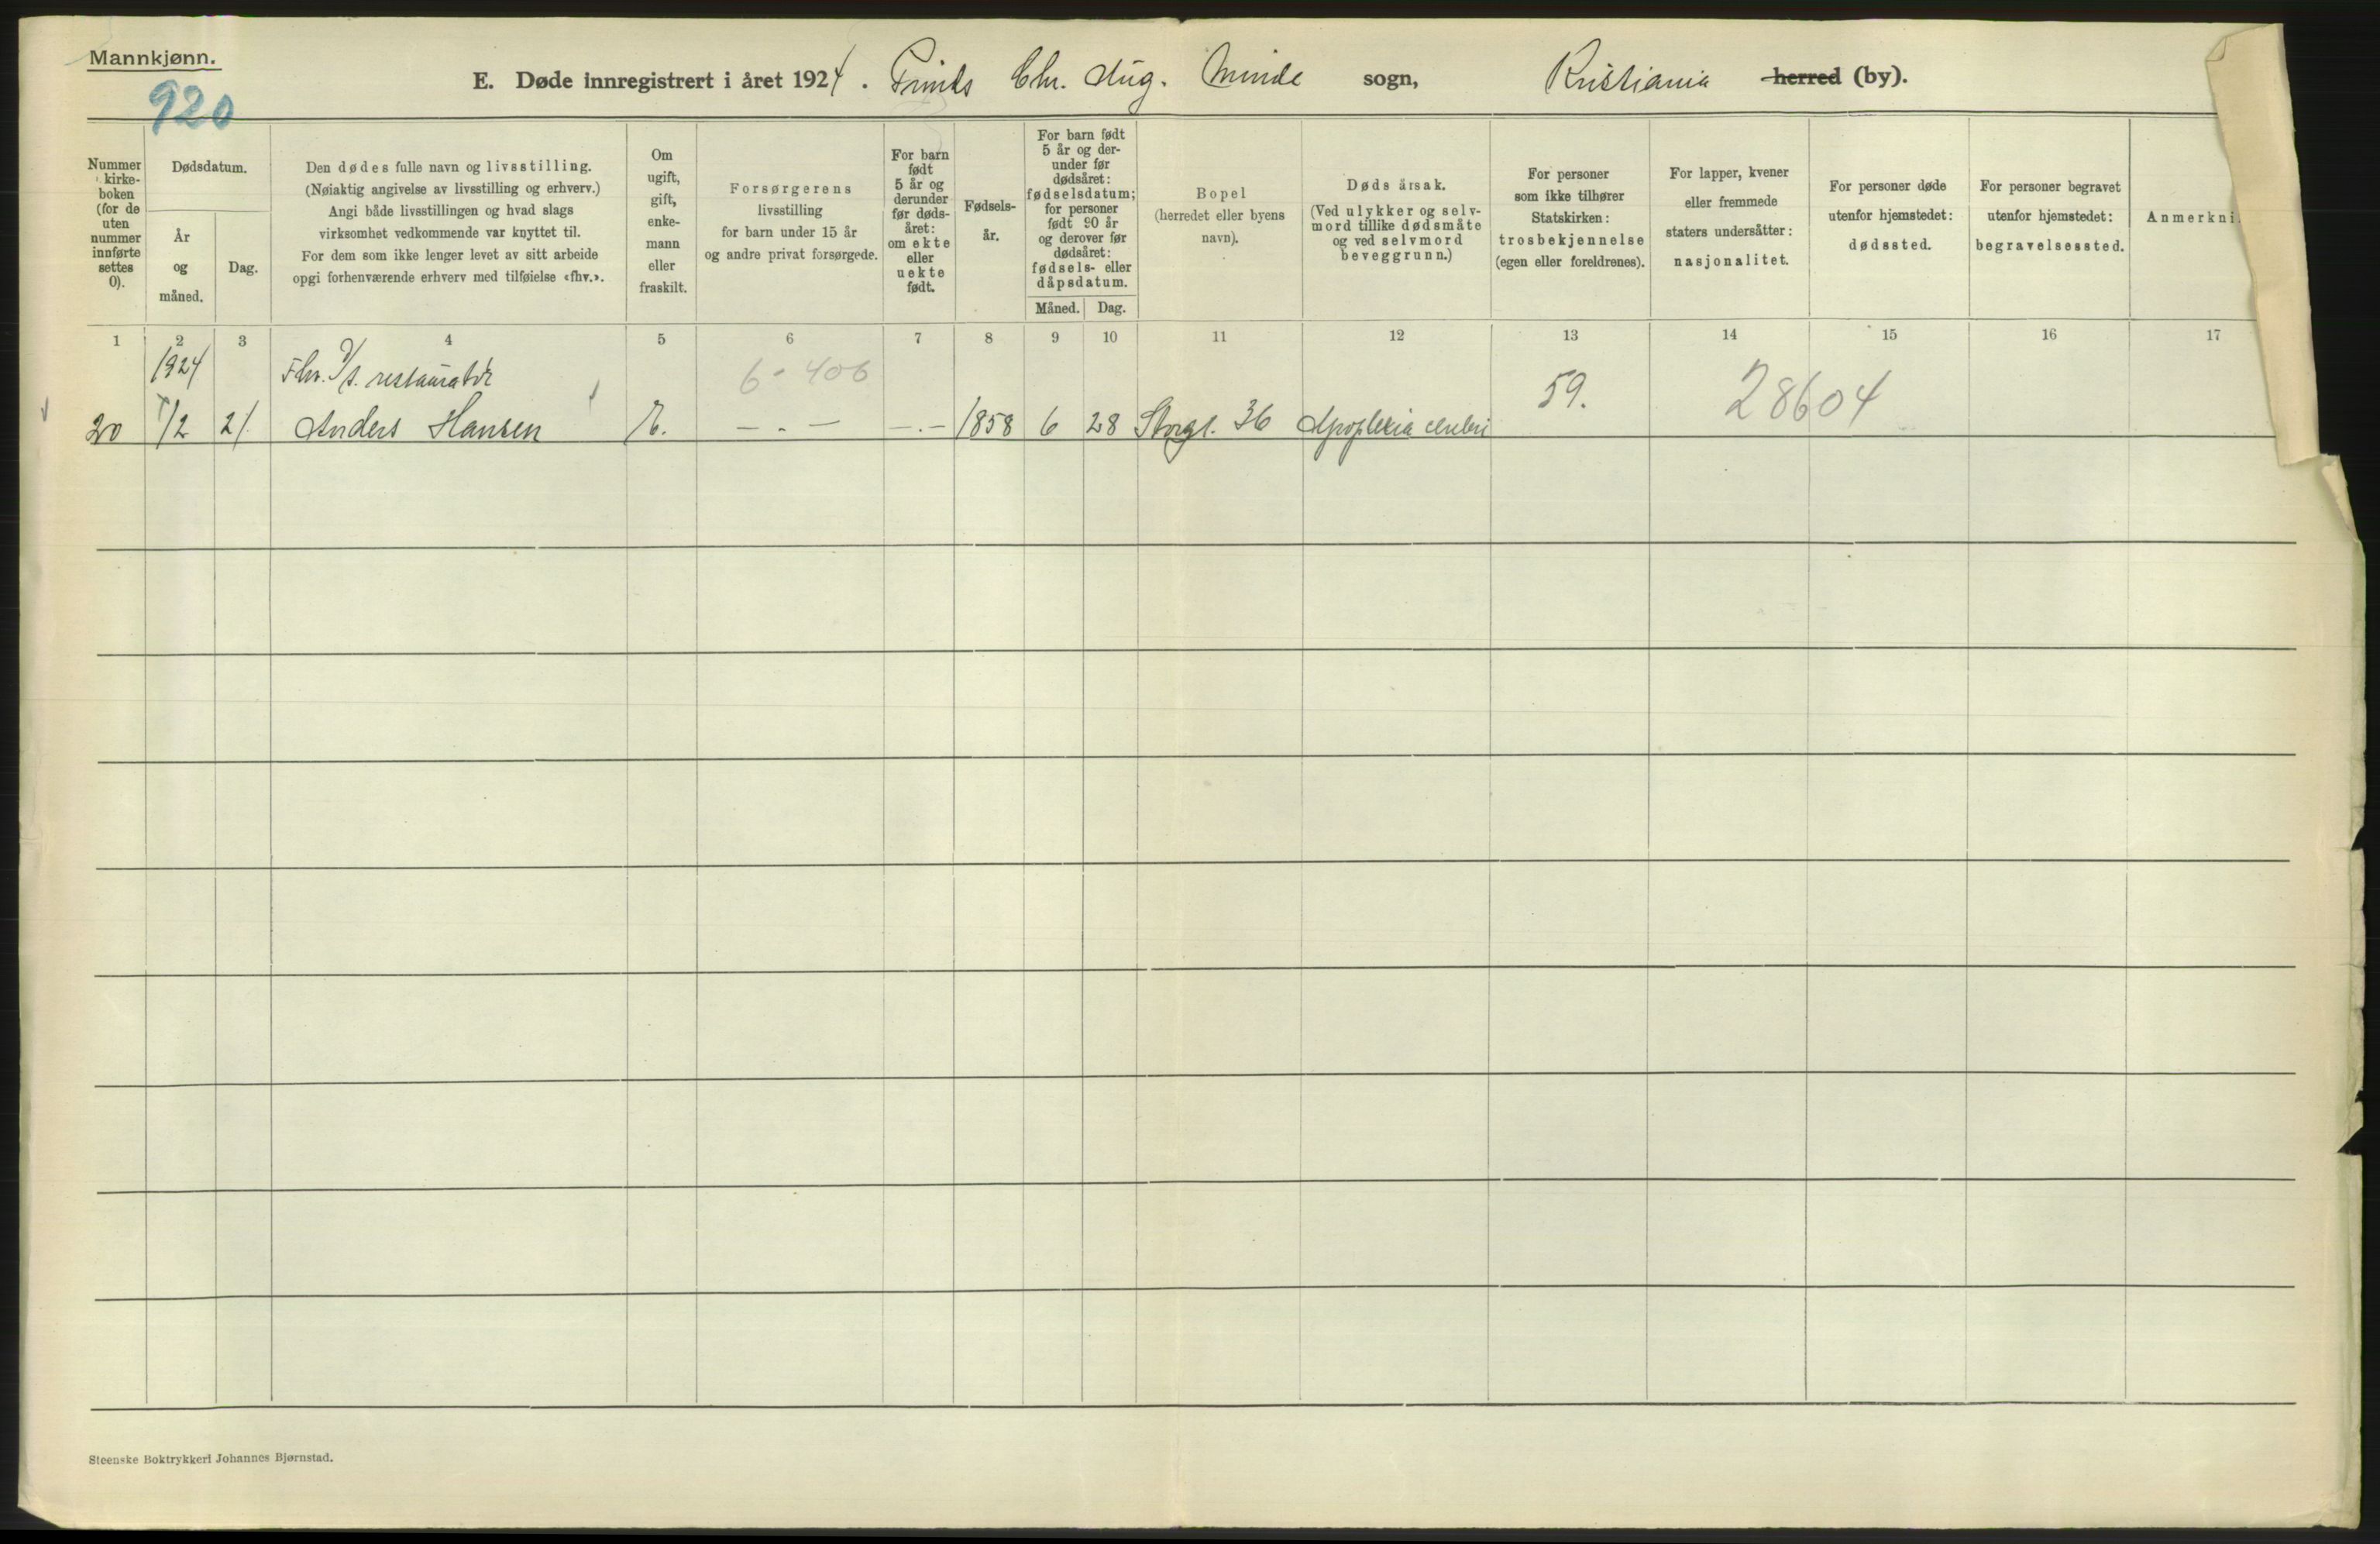 Mannkjønn.
920
E. Døde innregistrert i året 1924. Prinds Chr. Aug. Minde sogn, Kristiania herred (by).
Nummer
kirke-
boken
(for de
uten
nummer
innførte
settes
0).
Dødsdatum.
År
og
måned.
Dag.
Den dødes fulle navn og livsstilling.
(Nøiaktig angivelse av livsstilling og erhverv.)
Angi både livsstillingen og hvad slags
virksomhet vedkommende var knyttet til.
For dem som ikke lenger levet av sitt arbeide
opgi forhenværende erhverv med tilføielse «fhv.».
Om
ugift,
gift,
enke-
mann
eller
fraskilt.
Forsørgerens
livsstilling
for barn under 15 år
og andre privat forsørgede.
For barn
født
5 år og
derunder
før døds-
året:
om ekte
eller
uekte
født.
Fødsels-
år.
For barn født
5 år og der-
under før
dødsåret:
fødselsdatum;
for personer
født 90 år
og derover før
dødsåret:
fødsels- eller
dåpsdatum.
Måned. Dag.
Bopel
(herredet eller byens
navn).
Døds årsak.
(Ved ulykker og selv-
mord tillike dødsmåte
og ved selvmord
beveggrunn.)
For personer
som ikke tilhører
Statskirken:
trosbekjennelse
(egen eller foreldrenes).
For lapper, kvener
eller fremmede
staters undersåtter:
nasjonalitet.
For personer døde
utenfor hjemstedet:
dødssted.
For personer begravet
utenfor hjemstedet:
begravelsessted.
Anmerkni
1 2 3 4 5 6 7 8 9 10 11 12 13 14 15 16 17
1924 Fhv. restauratør 6-406 59. 28604
20 /2 21. Anders Hansen E. — - — —.— 1858 6 28 Storgt. 36 Apoplexia cerebri
Steenske Boktrykkeri Johannes Bjørnstad.